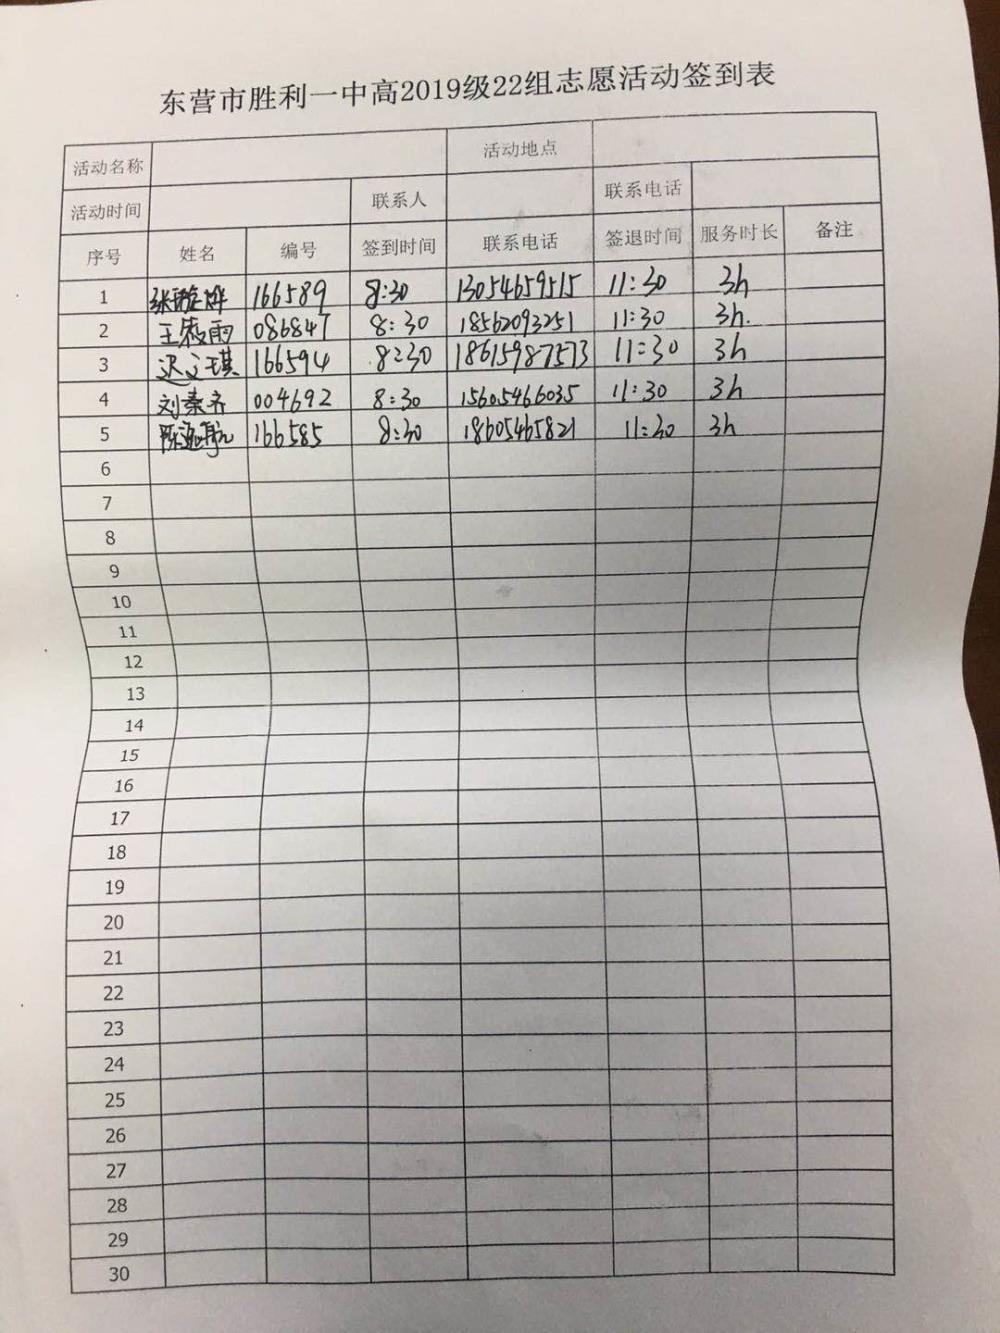 东营市胜利一中高2019级22组志愿活动签到表
活动名称 活动地点
活动时间 联系人 联系电话
序号 姓名 编号 签到时间 联系电话 签退时间 服务时长 备注
1 166589 8:30 13054659515 11:30 3h
2 王薇雨 086847 8:30 18562093251 11:30 3h.
3 迟文琪 166594 8:30 18615987573 11:30 3h
4 刘秦齐 004692 8:30 15605466035 11:30 3h
5 166585 8:30 18605465821 11:30 3h
6
7
8
9
10
11
12
13
14
15
16
17
18
19
20
21
22
23
24
25
26
27
28
29
30